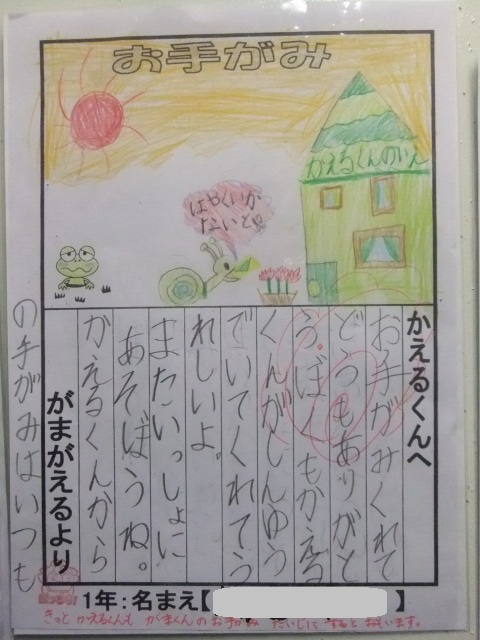 お手がみ
かえるくんのいえ
はやくいか
ないと
かえるくんへ
お手がみくれて
どうもありがと
う。ぼくもかえる
くんがしんゆう
でいてくれてう
れしいよ。
またいっしょに
あそぼうね。
かえるくんから
の手がみはいつも
がまがえるより
1年:名まえ【 】
きっと かえるくんも がまくんの お手がみ たいじに すると 思います。